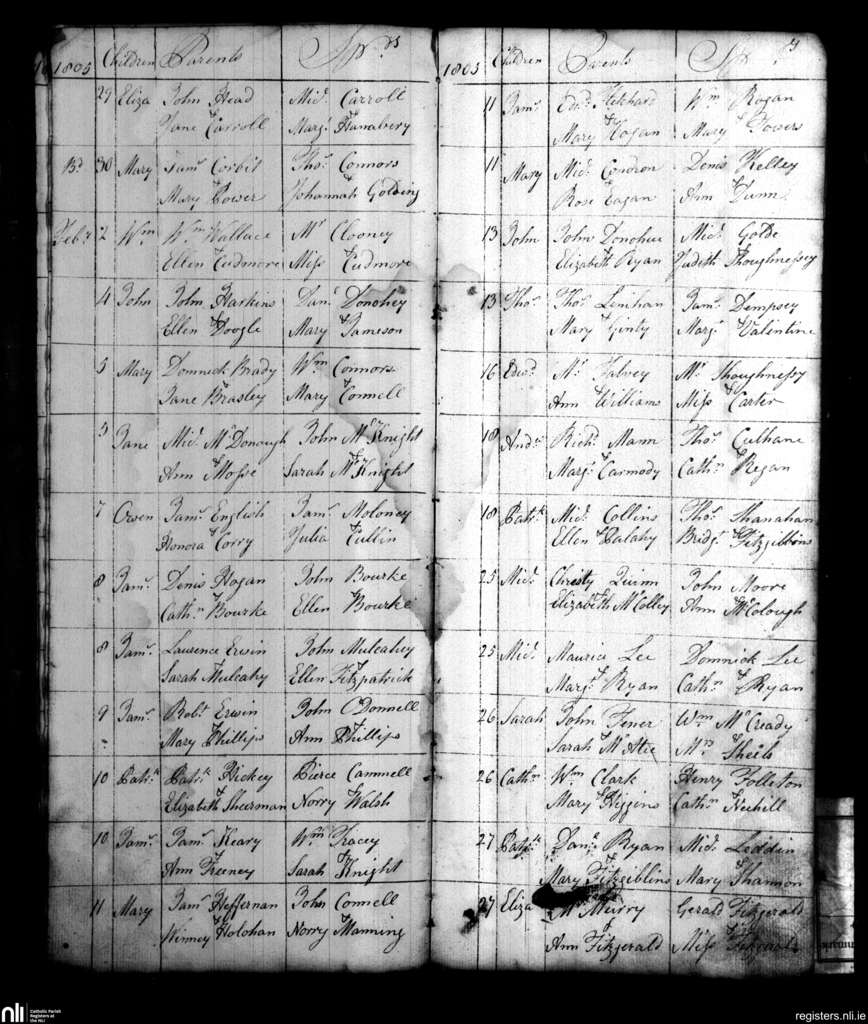 1805 Children Parents Spr.s
29 Eliza John Head Mic.l Carroll
& Jane Carroll Marg.t & Hanabery
B.d 30 Mary Jam.s Corbit Tho.s Connors
Mary & Power Johannah & Golding
Feb.y 2 W.m W.m Wallace M.r Clooney
Ellen & Cudmore Miss & Cudmore
4 John John Harkins Dan.l Donohey
Ellen & Doogle Mary & Jameson
5 Mary Domnick Brady W.m Connors
Jane & Brasley Mary & Connell
5 Jane Mic.l McDonough John McKnight
Ann & Mosse Sarah & McKnight
7 Owen Jam.s English Jam.s Moloney
Honora & Corry Julia & Cullin
8 Jam.s Denis Hogan John Bourke
Cath.n & Bourke Ellen & Bourke
8 Jam.s Laurence Erwin John Mulcahey
Sarah & Mulcahy Ellen & Fitzpatrick
9 Jam.s Rob.t Erwin John O'Donnell
Mary & Phillips Ann & Phillips
10 Patr.k Patr.k Hickey Pierce Cammell
Elizabeth & Shearman Norry & Walsh
10 Jam.s Jam.s Keary W.m Tracey
Ann & Freeney Sarah & Knight
11 Mary Jam.s Heffernan John Connell
Winney & Holohan Norry & Manning
1805 Children Parents Sp.r s
11 Jam.s Edw.d Pitchard W.m Rogan
Mary & Cogan Mary & Powers
11 Mary Mic.l Condron Denis Kelley
Rose & Eagan Ann & Dunn
13 John John Donohue Mic.l Goode
Elizabeth & Ryan Judith & Shoughnessy
13 Tho.s Tho.s Linihan Jam.s Dempsey
Mary & Ginty Marg.t & Valentine
16 Edw.d M.r Falvey M.r Shoughnessy
Ann & Williams Miss & Carter
18 And.w Rich.d Mann Tho.s Culhane
Marg.t & Carmody Cath.n & Regan
18 Patr.k Mic.l Collins Tho.s Shanahan
Ellen & Palahy Bridg.t & Fitzgibbons
25 Mic.l Christy Quinn John Moore
Elizabeth & McColley Ann & McColough
25 Mic.l Maurice Lee Domnick Lee
Marg.t & Ryan Cath.n & Ryan
26 Sarah John Fener W.m McCready
Sarah & McAtee M.rs & Sheils
26 Cath.n W.m Clark Henry Folleton
Mary & Higgins Cath.n & Nehill
27 Patr.k Dan.l Ryan Mic.l Leddin
Mary & Fitzgiblins Mary & Shannon
27 Eliza M.r Murry Gerald Fitzgerald
Ann & Fitzgerald Miss & Fitzgerald
nli Catholic Parish
Registers at
the NLI
registers.nli.ie